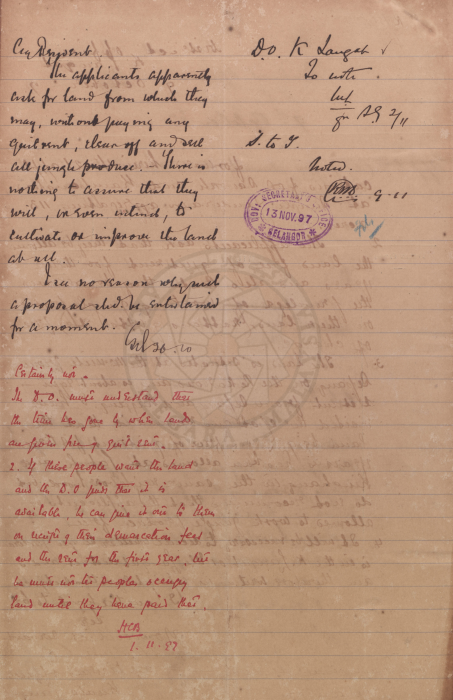 The applicants apparently
ask for land from which they
may, without paying any
quitrent, clear off and sell
all jungle produce. There is
nothing to assure that they
will, or even intend, to
cultivate or improve the land
at all.
I see no reason why such
a proposal shd. be entertained
for a moment.
30.10
Certainly not.
The D.O. must understand that
the time has gone by when lands
are given free of quit rent.
2. If these people want the land
and the D.O finds that it is
available he can give it out to them
on receipt of their demarcation fees
and the rent for the first year. but
he must not let people occupy
land until they have paid that.
HCB
1.11.97
D.O. K Langat
To note.
2/11
S. to G.
Noted.
9-11
GOVT SECRETARY'S OFFICE
13 NOV. 97
SELANGOR